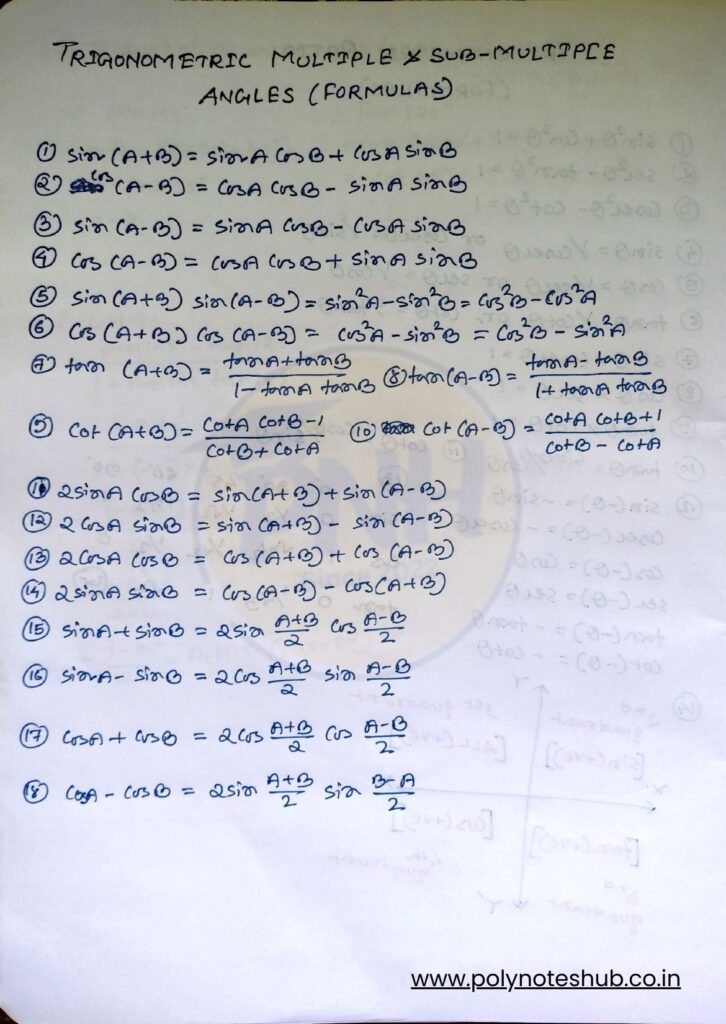 TRIGONOMETRIC MULTIPLE & SUB-MULTIPLE
ANGLES (FORMULAS)
① sin (A+B) = sinA cosB + cosA sinB
② cos (A-B) = cosA cosB - sinA sinB
③ sin (A-B) = sinA cosB - cosA sinB
④ cos (A-B) = cosA cosB + sinA sinB
⑤ sin(A+B) sin(A-B) = sin²A - sin²B = cos²B - cos²A
⑥ cos (A+B) cos (A-B) = cos²A - sin²B = cos²B - sin²A
⑦ tan (A+B) = (tanA + tanB)/(1 - tanA tanB) ⑧ tan(A-B) = (tanA - tanB)/(1 + tanA tanB)
⑨ cot (A+B) = (cotA cotB - 1)/(cotB + cotA) ⑩ cot (A-B) = (cotA cotB + 1)/(cotB - cotA)
⑪ 2sinA cosB = sin(A+B) + sin (A-B)
⑫ 2 cosA sinB = sin (A+B) - sin (A-B)
⑬ 2 cosA cosB = cos (A+B) + cos (A-B)
⑭ 2 sinA sinB = cos (A-B) - cos (A+B)
⑮ sinA + sinB = 2sin (A+B)/2 cos (A-B)/2
⑯ sinA - sinB = 2 cos (A+B)/2 sin (A-B)/2
⑰ cosA + cosB = 2 cos (A+B)/2 cos (A-B)/2
⑱ cosA - cosB = 2sin (A+B)/2 sin (B-A)/2
www.polynoteshub.co.in